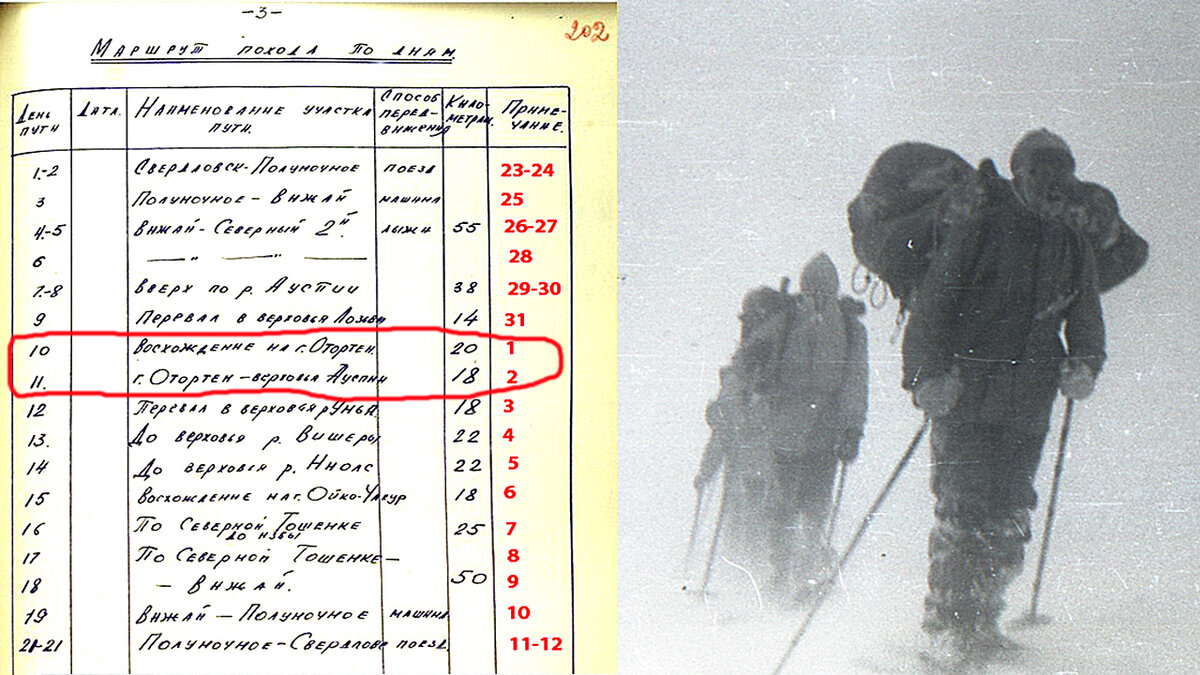 -3-
202
Маршрут похода по дням.
День пути Дата. Наименование участка пути. Способ передвижения Километраж. Примечание.
1-2 Свердловск-Полуночное поезд 23-24
3 Полуночное - Вижай машина 25
4-5 Вижай-Северный 2й. лыжи 55 26-27
6 —— " —— " —— 28
7-8 Вверх по р. Ауспии 38 29-30
9 Перевал в верховья Лозьвы 14 31
10 Восхождение на г. Отортен. 20 1
11. г. Отортен-верховья Ауспии 18 2
12 Перевал в верховья р Унья 18 3
13. До верховья р. Вишеры 22 4
14 До верховья р. Ниолс 22 5
15 Восхождение на г. Ойко-Чакур 18 6
16 По Северной Тошенке до избы 25 7
17 По Северной Тошенке- 8
18 - Вижай. 50 9
19 Вижай-Полуночное машина 10
21-21 Полуночное-Свердловс поезд. 11-12